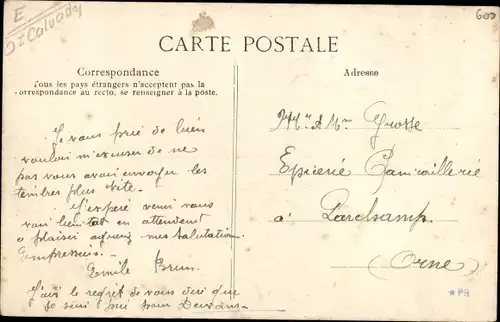 E
Calvados
600
CARTE POSTALE
Correspondance
Tous les pays étrangers n'acceptent pas la
correspondance au recto. se renseigner à la poste.
Adresse
Je vous prie de bien
vouloir m'excuser de ne
pas vous avoir envoyer les
timbres plus vite.
J'espère venir vous
voir bientot en attendent
a plaisir mes salutation
empressés.
Emile Brun
J'ai le regret de vous dire que
je suis pour
Mr & Mme Grosse
Epicerie
à Larchamp.
(Orne)
★PB